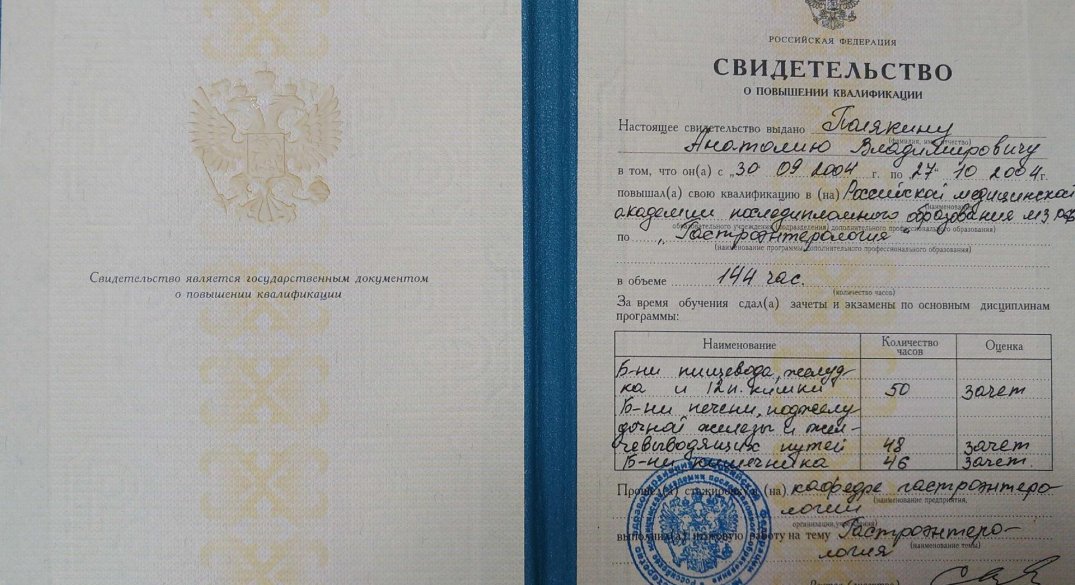 Свидетельство является государственным документом
о повышении квалификации
РОССИЙСКАЯ ФЕДЕРАЦИЯ
СВИДЕТЕЛЬСТВО
О ПОВЫШЕНИИ КВАЛИФИКАЦИИ
Настоящее свидетельство выдано Полякину
(фамилия, имя, отчество)
Анатолию Владимировичу
в том, что он(а) с „30 09 2004 г. по „27" 10 2004 г.
повышал(а) свою квалификацию в (на) Российской медицинской
(наименование
академии последипломного образования МЗ РФ
образовательного учреждения (подразделения) дополнительного профессионального образования)
по „Гастроэнтерология"
(наименование программы дополнительного профессионального образования)
в объеме 144 час.
(количество часов)
За время обучения сдал(а) зачеты и экзамены по основным дисциплинам
программы:
Наименование Количество часов Оценка
Б-ни пищевода, желуд-
ка и 12п. кишки 50 зачет
Б-ни печени, поджелу
дочной железы и жел-
чевыводящих путей 48 зачет
Б-ни кишечника 46 зачет.
Прошел(а) стажировку в (на) кафедре гастроэнтеро
(наименование предприятия,
логии
организации, учреждения)
выполнил(а) итоговую работу на тему Гастроэнтеро-
(наименование темы)
логия